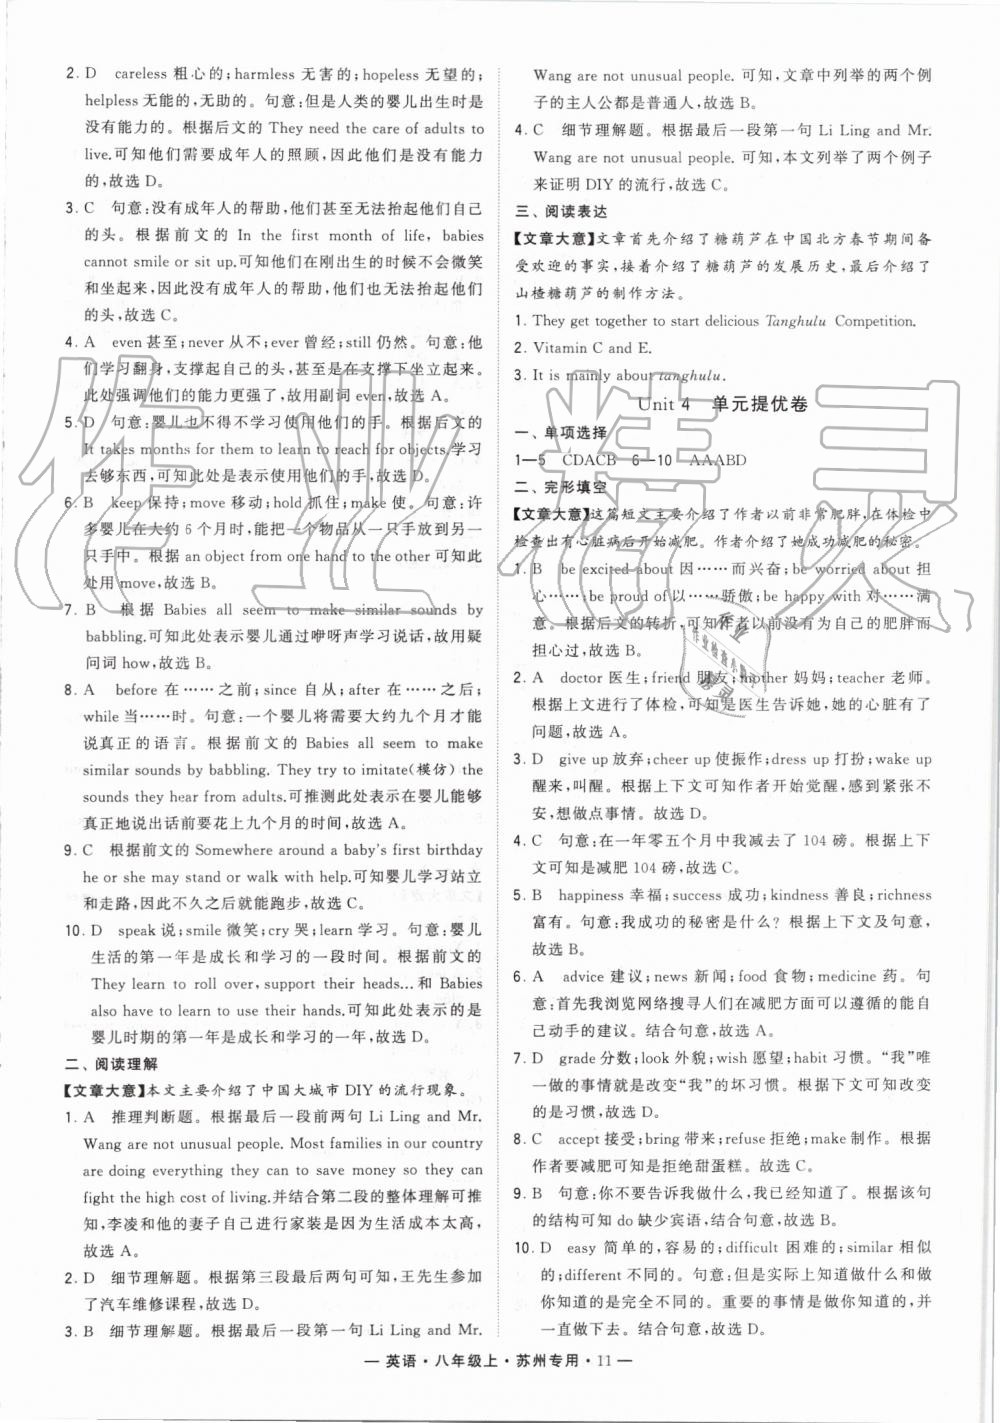 2. D　careless 粗心的;harmless 无害的;hopeless 无望的;
helpless 无能的,无助的。句意:但是人类的婴儿出生时是
没有能力的。根据后文的 They need the care of adults to
live.可知他们需要成年人的照顾,因此他们是没有能力
的,故选 D。
3. C　句意:没有成年人的帮助,他们甚至无法抬起他们
的头。根据前文的 In the first month of life, babies
cannot smile or sit up.可知他们在刚出生的时候不会微笑
和坐起来,因此没有成年人的帮助,他们无法抬起他们
的头,故选 C。
4. A　even甚至;never从不;ever曾经;still仍然。句意:他
们学习翻身,支撑起自己的头,甚至在支撑下坐起来。
此处强调他们的能力更强了,故用副词 even,故选 A。
5. D　句意:婴儿也不得不学习使用他们的手。根据后文的
It takes months for them to learn to reach for objects.学习
去够东西,可知此处是表示使用他们的手,故选 D。
6. B　keep保持;move移动;hold抓住;make使。句意:许
多婴儿在大约 6 个月时,能把一个物品从一只手放到另一
只手中。根据 an object from one hand to the other 可知此
处用 move,故选 B。
7. B　根据 Babies all seem to make similar sounds by
babbling.可知此处表示婴儿通过咿呀声学习说话,故用疑
问词 how,故选 B。
8. A　before 在……之前;since 自从;after 在……之后;
while 当……时。句意:一个婴儿将需要大约九个月才能
说真正的语言。根据前文的 Babies all seem to make
similar sounds by babbling. They try to imitate(模仿) the
sounds they hear from adults.可推测此处表示在婴儿能够
真正地说出话前要花上九个月的时间,故选 A。
9. C　根据前文的 Somewhere around a baby's first birthday
he or she may stand or walk with help.可知婴儿学习站立
和走路,因此不久之后就能跑步,故选 C。
10. D　speak 说;smile 微笑;cry 哭;learn 学习。句意:婴儿
生活的第一年是成长和学习的一段时间。根据前文的
They learn to roll over, support their heads...和 Babies
also have to learn to use their hands.可知此处表示的是
婴儿时期的第一年是成长和学习的一年,故选 D。
二、阅读理解
【文章大意】本文主要介绍了中国大城市 DIY 的流行现象。
1. A　推理判断题。根据最后一段前两句 Li Ling and Mr.
Wang are not unusual people. Most families in our country
are doing everything they can to save money so they can
fight the high cost of living.并结合第二段的整体理解可推
知,李凌和他的妻子自己进行家装是因为生活成本太高,
故选 A。
2. D　细节理解题。根据第三段最后两句可知,王先生参加
了汽车维修课程,故选 D。
3. B　细节理解题。根据最后一段第一句 Li Ling and Mr.
Wang are not unusual people. 可知,文章中列举的两个例
子的主人公都是普通人,故选 B。
4. C　细节理解题。根据最后一段第一句 Li Ling and Mr.
Wang are not unusual people. 可知,本文列举了两个例子
来证明 DIY 的流行,故选 C。
三、阅读表达
【文章大意】文章首先介绍了糖葫芦在中国北方春节期间备
受欢迎的事实,接着介绍了糖葫芦的发展历史,最后介绍了
山楂糖葫芦的制作方法。
1. They get together to start delicious Tanghulu Competition.
2. Vitamin C and E.
3. It is mainly about tanghulu.
Unit 4　单元提优卷
一、单项选择
1—5　CDACB　6—10　AAABD
二、完形填空
【文章大意】这篇短文主要介绍了作者以前非常肥胖,在体检中
检查出有心脏病后开始减肥。作者介绍了她成功减肥的秘密。
1. B　be excited about 因……而兴奋;be worried about 担
心……;be proud of 以……骄傲;be happy with 对……满
意。根据后文的转折,可知作者以前没有为自己的肥胖而
担心过,故选 B。
2. A　doctor 医生;friend 朋友;mother 妈妈;teacher 老师。
根据上文进行了体检,可知是医生告诉她,她的心脏有了
问题,故选 A。
3. D　give up 放弃;cheer up 使振作;dress up 打扮;wake up
醒来,叫醒。根据上下文可知作者开始觉醒,感到紧张不
安,想做点事情。故选 D。
4. C　句意:在一年零五个月中我减去了 104 磅。根据上下
文可知是减肥 104 磅。故选 C。
5. B　happiness 幸福;success 成功;kindness 善良;richness
富有。句意:我成功的秘密是什么? 根据上下文及句意,
故选 B。
6. A　advice 建议;news 新闻;food 食物;medicine 药。句
意:首先我浏览网络搜寻人们在减肥方面可以遵循的能自
己动手的建议。结合句意,故选 A。
7. D　grade分数;look 外貌;wish 愿望;habit 习惯。“我”唯
一做的事情就是改变“我”的坏习惯。根据下文可知改变
的是习惯,故选 D。
8. C　accept 接受;bring 带来;refuse 拒绝;make 制作。根据
作者要减肥可知是拒绝甜蛋糕。故选 C。
9. B　句意:你不要告诉我做什么,我已经知道了。根据该句
的结构可知 do 缺少宾语,结合句意,故选 B。
10. D　easy 简单的,容易的;difficult 困难的;similar 相似
的;different 不同的。句意:但是实际上知道做什么和做
你知道的是完全不同的。重要的事情是做你知道的,并
且一直做下去。故选 D。
— 英语·八年级上·苏州专用·11 —
作业精灵